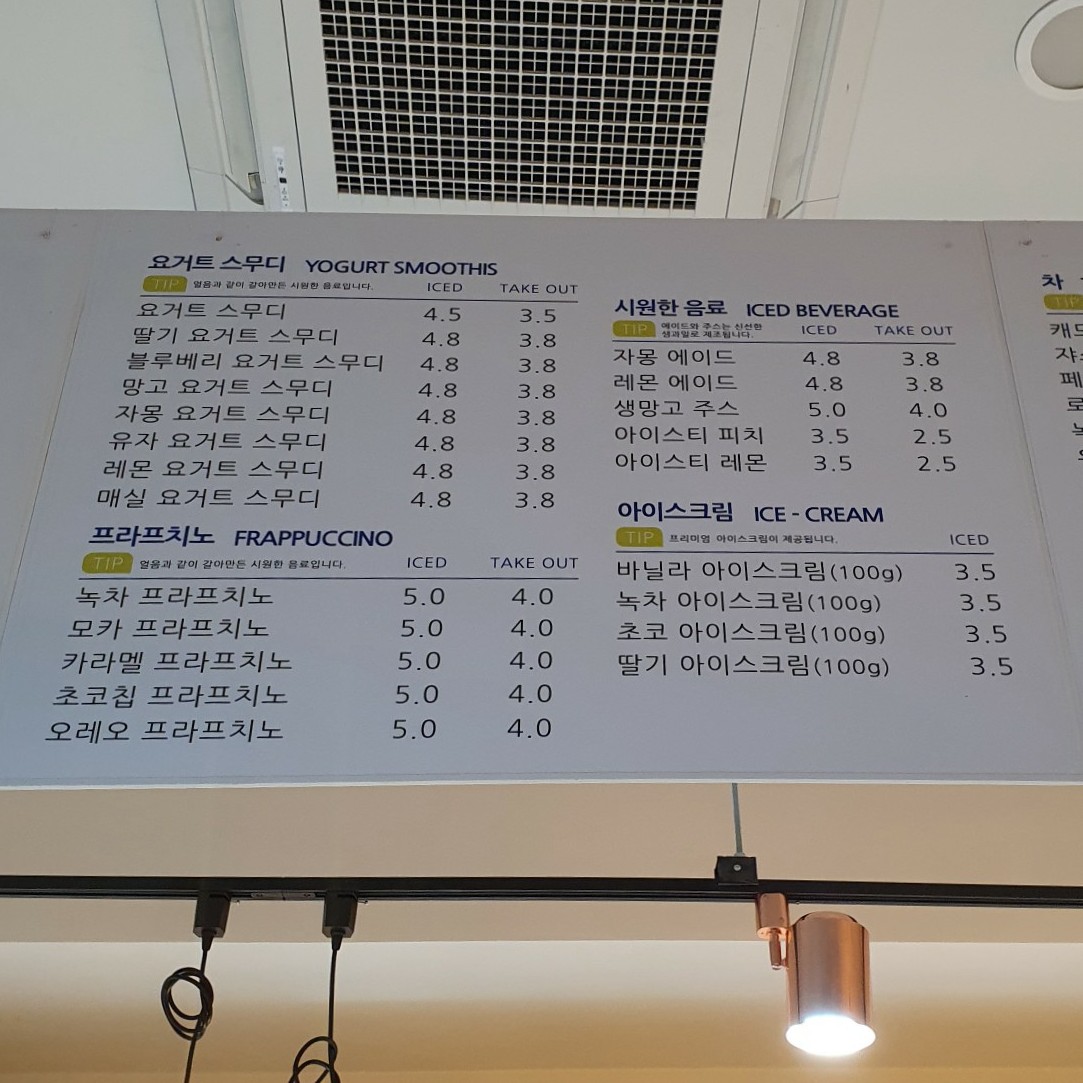 요거트 스무디 YOGURT SMOOTHIS
TIP 얼음과 같이 갈아만든 시원한 음료입니다. ICED TAKE OUT
요거트 스무디 4.5 3.5
딸기 요거트 스무디 4.8 3.8
블루베리 요거트 스무디 4.8 3.8
망고 요거트 스무디 4.8 3.8
자몽 요거트 스무디 4.8 3.8
유자 요거트 스무디 4.8 3.8
레몬 요거트 스무디 4.8 3.8
매실 요거트 스무디 4.8 3.8
프라프치노 FRAPPUCCINO
TIP 얼음과 같이 갈아만든 시원한 음료입니다. ICED TAKE OUT
녹차 프라프치노 5.0 4.0
모카 프라프치노 5.0 4.0
카라멜 프라프치노 5.0 4.0
초코칩 프라프치노 5.0 4.0
오레오 프라프치노 5.0 4.0
시원한 음료 ICED BEVERAGE
TIP 에이드와 주스는 신선한 ICED TAKE OUT
생과일로 제조됩니다.
자몽 에이드 4.8 3.8
레몬 에이드 4.8 3.8
생망고 주스 5.0 4.0
아이스티 피치 3.5 2.5
아이스티 레몬 3.5 2.5
아이스크림 ICE - CREAM
TIP 프리미엄 아이스크림이 제공됩니다. ICED
바닐라 아이스크림(100g) 3.5
녹차 아이스크림(100g) 3.5
초코 아이스크림(100g) 3.5
딸기 아이스크림(100g) 3.5
차
TIP